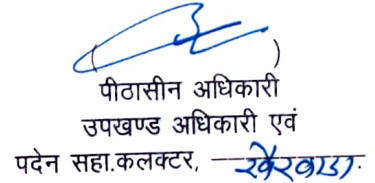 ( )
पीठासीन अधिकारी
उपखण्ड अधिकारी एवं
पदेन सहा.कलक्टर, खैरवाडा.